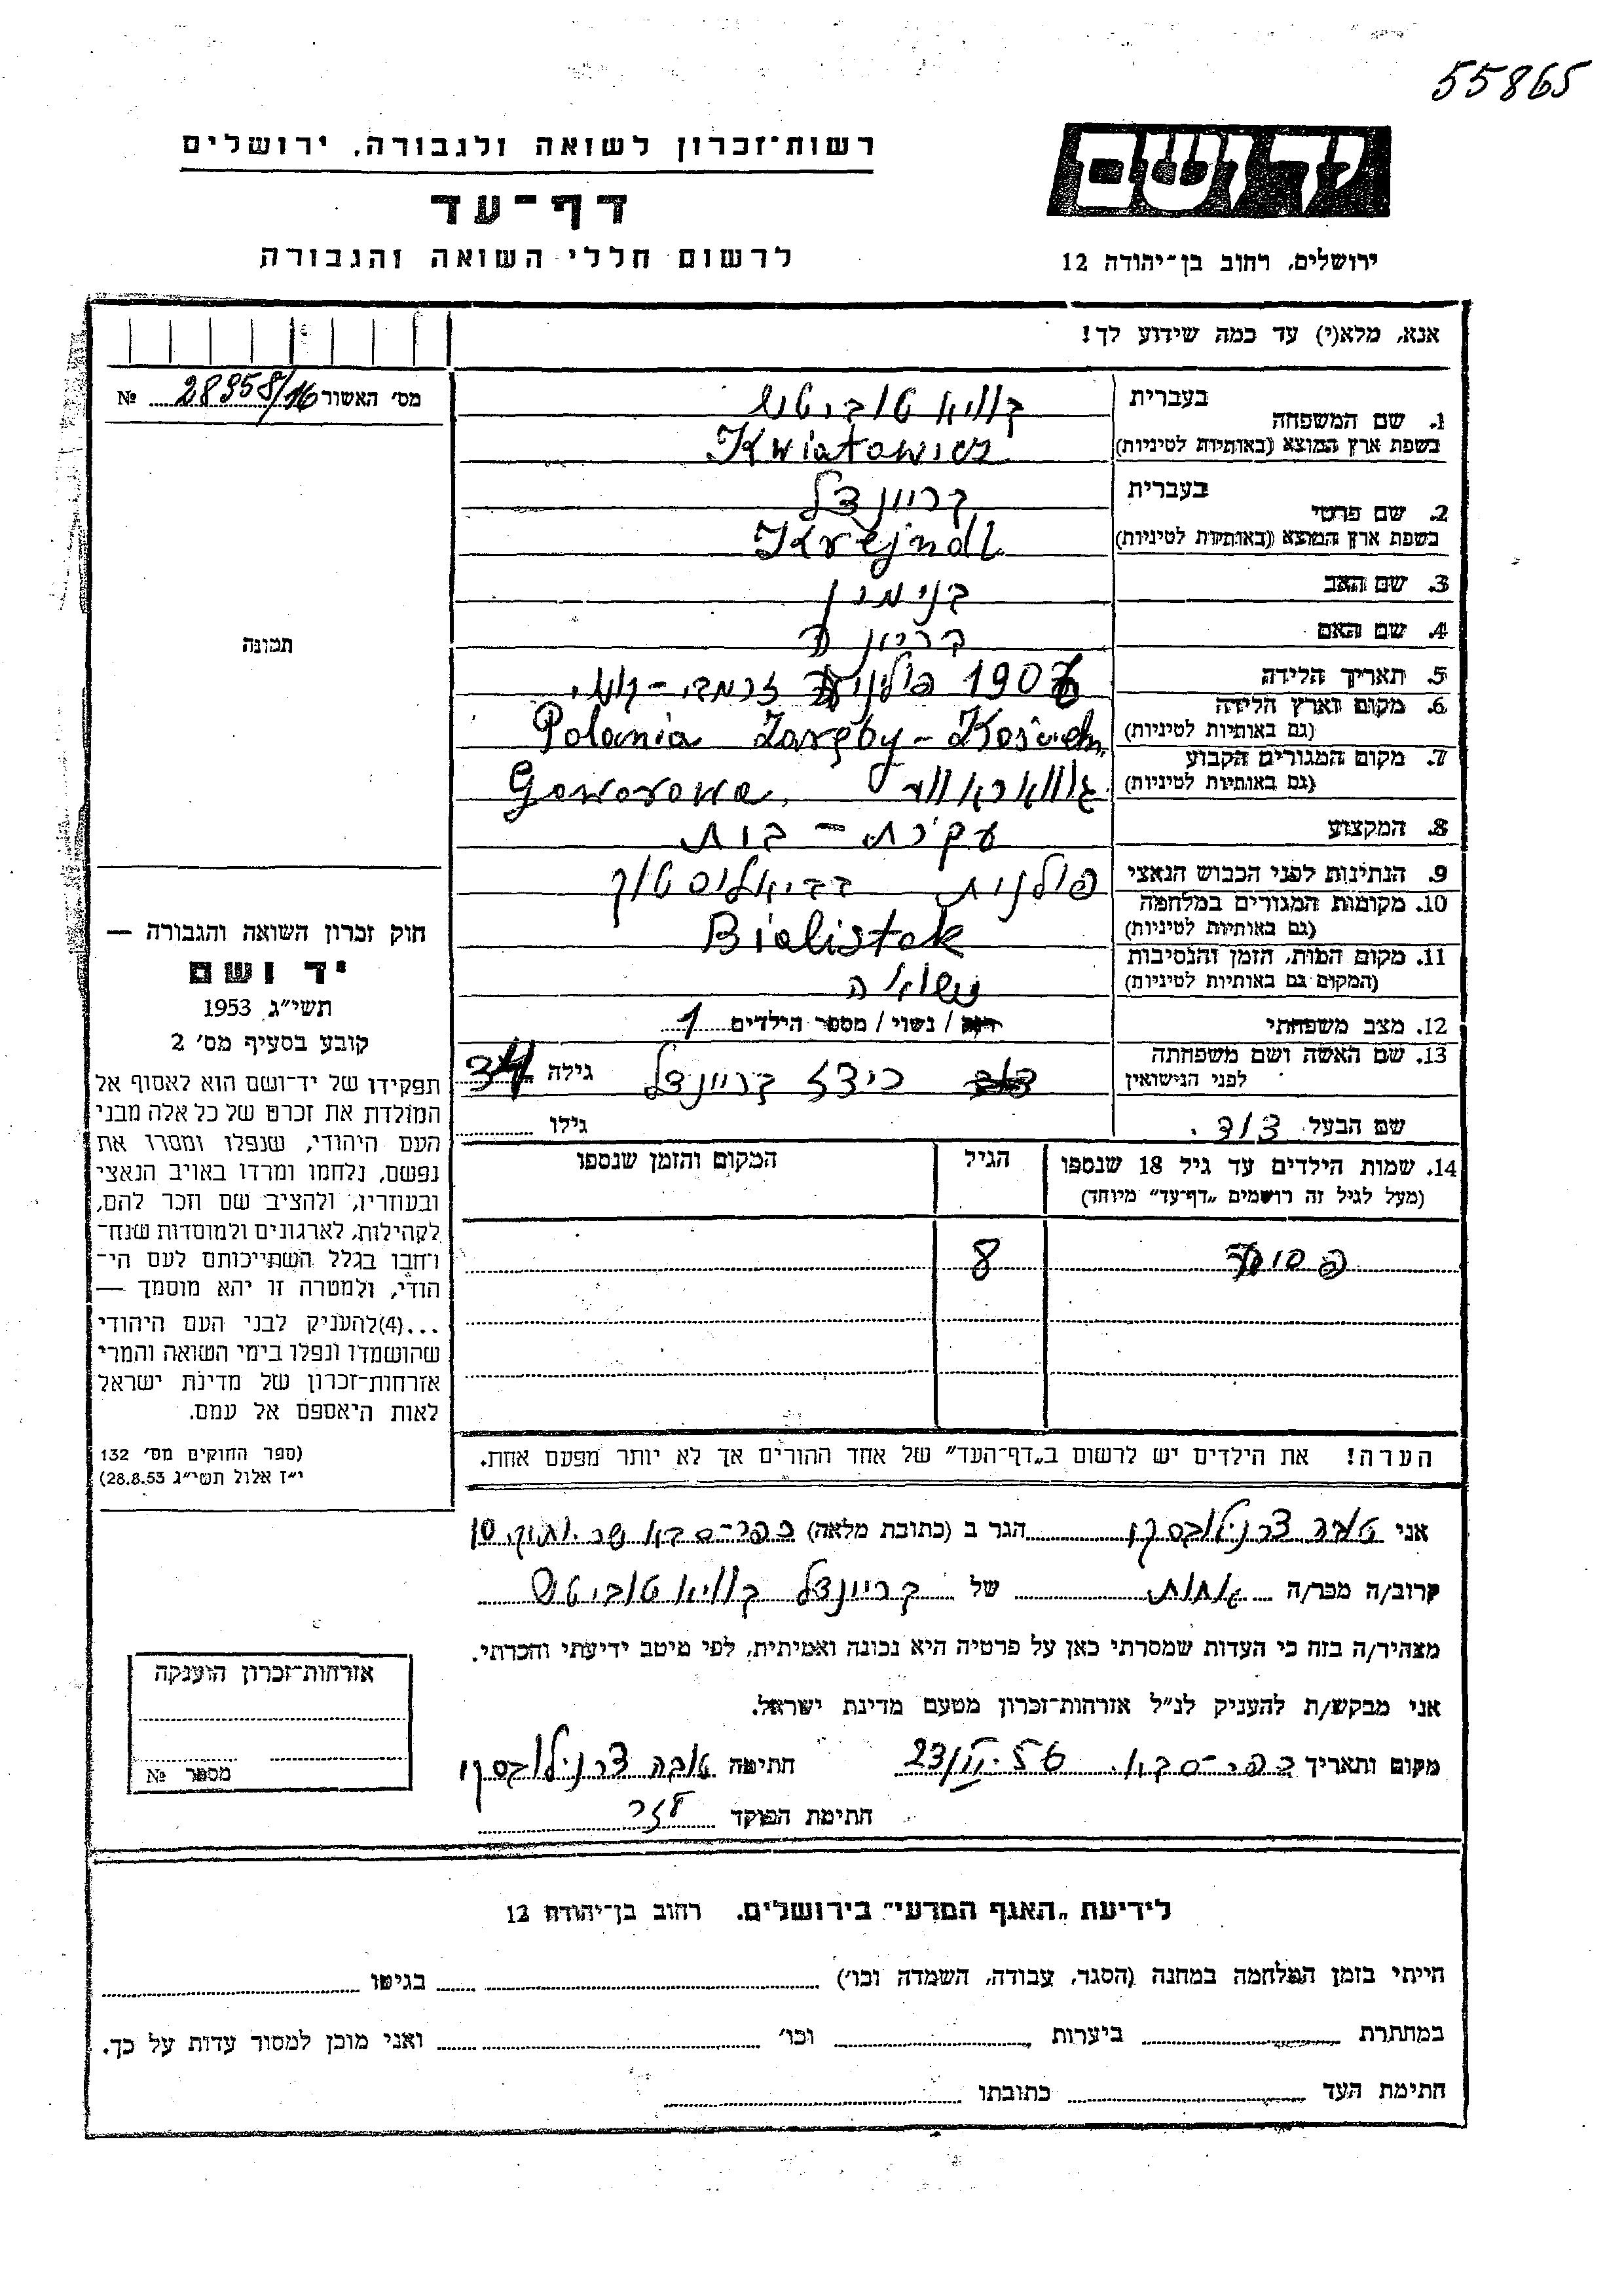 55865
יד ושם
ירושלים, רחוב בן־יהודה 12
רשות־זכרון לשואה ולגבורה, ירושלים
דף־עד
לרשום חללי השואה והגבורה
אנא, מלא(י) עד כמה שידוע לך!
מס׳ האשור 28958/16 №
בעברית
1. שם המשפחה
קוויאטוביטש
בשפת ארץ המוצא (באותיות לטיניות) Kwiatowicz
בעברית
2. שם פרטי
קריינדל
בשפת ארץ המוצא (באותיות לטיניות) Krejndl
3. שם האב בנימין
4. שם האם
5. תאריך הלידה 1907
6. מקום וארץ הלידה
(גם באותיות לטיניות) Polania Zaręby-
7. מקום המגורים הקבוע
(גם באותיות לטיניות) Goworowa,
8. המקצוע עקרת-בית
9. הנתינות לפני הכבוש הנאצי פולנית
10. מקומות המגורים במלחמה
(גם באותיות לטיניות) Bialistok
11. מקום המות, הזמן והנסיבות
(המקום גם באותיות לטיניות)
12. מצב משפחתי / נשוי / מספר הילדים 1
13. שם האשה ושם משפחתה
לפני הנישואין קריינדל גילה 34
שם הבעל דוד. גילו
14. שמות הילדים עד גיל 18 שנספו
(מעל לגיל זה רושמים „דף־עד״ מיוחד)
הגיל
המקום והזמן שנספו
8
הערה! את הילדים יש לרשום ב„דף־העד״ של אחד ההורים אך לא יותר מפעם אחת.
תמונה
חוק זכרון השואה והגבורה —
יד ושם
תשי״ג 1953
קובע בסעיף מס׳ 2
תפקידו של יד־ושם הוא לאסוף אל
המולדת את זכרם של כל אלה מבני
העם היהודי, שנפלו ומסרו את
נפשם, נלחמו ומרדו באויב הנאצי
ובעוזריו, ולהציב שם וזכר להם,
לקהילות, לארגונים ולמוסדות שנח־
רחבו בגלל השתייכותם לעם הי־
הודי, ולמטרה זו יהא מוסמך —
...(4)להעניק לבני העם היהודי
שהושמדו ונפלו בימי השואה והמרי
אזרחות־זכרון של מדינת ישראל
לאות היאספם אל עמם.
(ספר החוקים מס׳ 132
י״ז אלול תשי״ג 28.8.53)
אני טובה צרנילובסקי הגר ב (כתובת מלאה) כפר-סבא
קרוב/ה מכר/ה אחות של קריינדל קוויאטוביטש
מצהיר/ה בזה כי העדות שמסרתי כאן על פרטיה היא נכונה ואמיתית, לפי מיטב ידיעתי והכרתי.
אני מבקש/ת להעניק לנ״ל אזרחות־זכרון מטעם מדינת ישראל.
מקום ותאריך כפר-סבא. חתימה טובה צרנילובסקי
חתימת הפוקד
אזרחות־זכרון הוענקה
מספר №
לידיעת „האגף המדעי״ בירושלים, רחוב בן־יהודה 12
חייתי בזמן המלחמה במחנה (הסגר, עבודה, השמדה וכו׳) בגיטו
במחתרת ביערות וכו׳ ואני מוכן למסור עדות על כך.
חתימת העד כתובתו